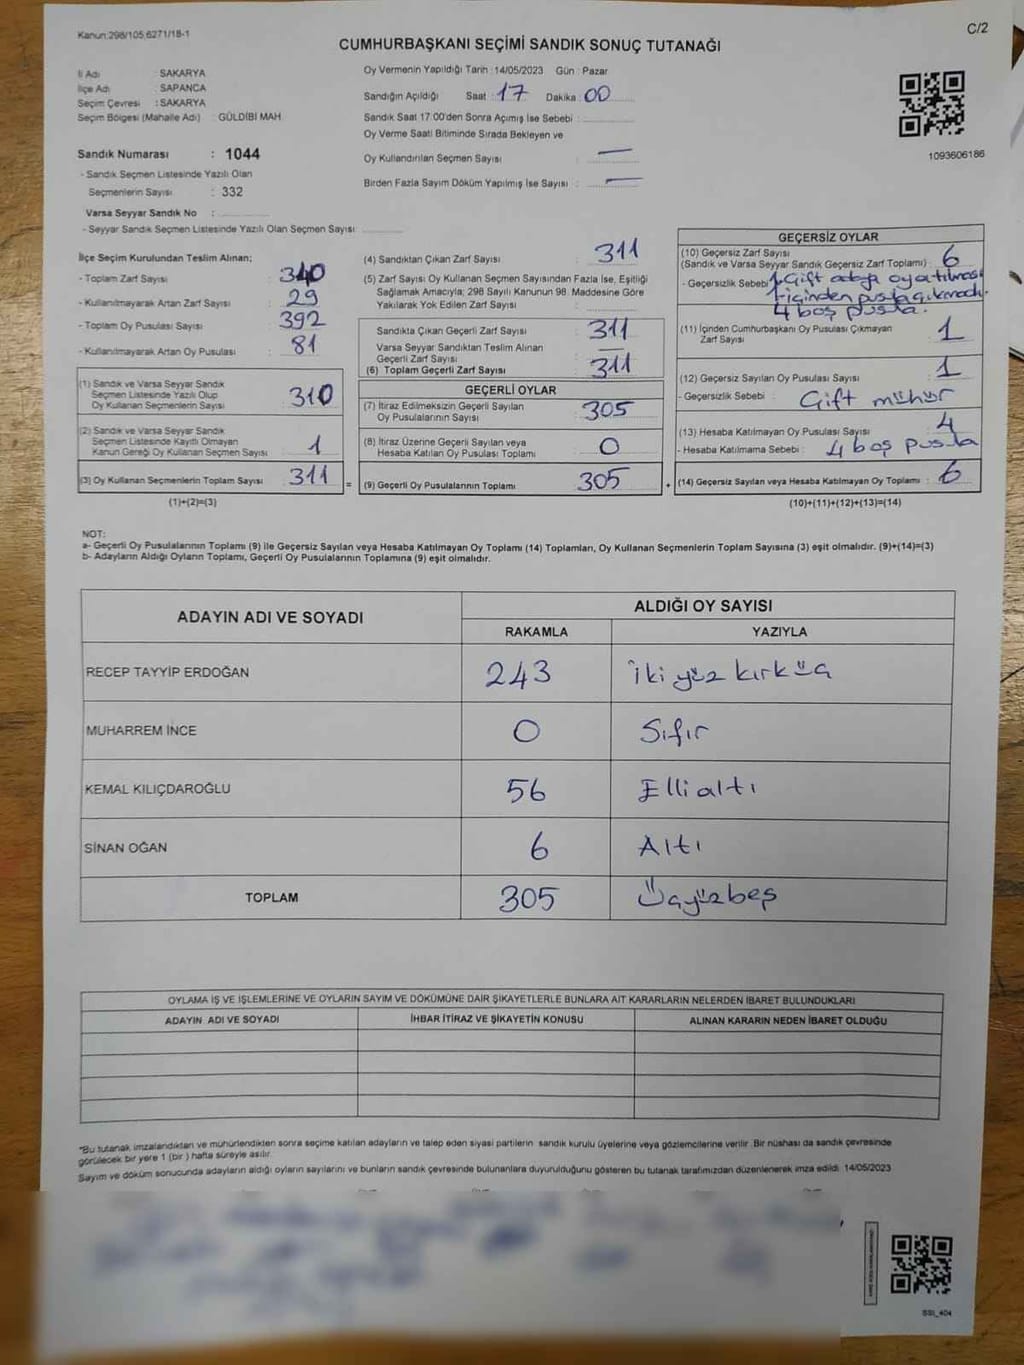 Kanun:298/105,6271/18-1
C/2
CUMHURBAŞKANI SEÇİMİ SANDIK SONUÇ TUTANAĞI
İl Adı : SAKARYA
İlçe Adı : SAPANCA
Seçim Çevresi : SAKARYA
Seçim Bölgesi (Mahalle Adı) : GÜLDİBİ MAH
Sandık Numarası : 1044
- Sandık Seçmen Listesinde Yazılı Olan
Seçmenlerin Sayısı : 332
Varsa Seyyar Sandık No :
- Seyyar Sandık Seçmen Listesinde Yazılı Olan Seçmen Sayısı :
Oy Vermenin Yapıldığı Tarih :14/05/2023 Gün : Pazar
Sandığın Açıldığı Saat : 17 Dakika : 00
Sandık Saat 17:00'den Sonra Açımış İse Sebebi :
Oy Verme Saati Bitiminde Sırada Bekleyen ve
Oy Kullandırılan Seçmen Sayısı : —
Birden Fazla Sayım Döküm Yapılmış İse Sayısı : —
1093606186
İlçe Seçim Kurulundan Teslim Alınan;
- Toplam Zarf Sayısı : 340
- Kullanılmayarak Artan Zarf Sayısı : 29
- Toplam Oy Pusulası Sayısı : 392
- Kullanılmayarak Artan Oy Pusulası : 81
(1) Sandık ve Varsa Seyyar Sandık
Seçmen Listesinde Yazılı Olup
Oy Kullanan Seçmenlerin Sayısı : 310
(2) Sandık ve Varsa Seyyar Sandık
Seçmen Listesinde Kayıtlı Olmayan
Kanun Gereği Oy Kullanan Seçmen Sayısı : 1
(3) Oy Kullanan Seçmenlerin Toplam Sayısı : 311
(1)+(2)=(3)
(4) Sandıktan Çıkan Zarf Sayısı : 311
(5) Zarf Sayısı Oy Kullanan Seçmen Sayısından Fazla İse, Eşitliği
Sağlamak Amacıyla; 298 Sayılı Kanunun 98. Maddesine Göre
Yakılarak Yok Edilen Zarf Sayısı :
Sandıkta Çıkan Geçerli Zarf Sayısı : 311
Varsa Seyyar Sandıktan Teslim Alınan
Geçerli Zarf Sayısı : —
(6) Toplam Geçerli Zarf Sayısı : 311
GEÇERLİ OYLAR
(7) İtiraz Edilmeksizin Geçerli Sayılan
Oy Pusulalarının Sayısı : 305
(8) İtiraz Üzerine Geçerli Sayılan veya
Hesaba Katılan Oy Pusulası Toplamı : 0
= (9) Geçerli Oy Pusulalarının Toplamı : 305 +
GEÇERSİZ OYLAR
(10) Geçersiz Zarf Sayısı
(Sandık ve Varsa Seyyar Sandık Geçersiz Zarf Toplamı) : 6
- Geçersizlik Sebebi : 1-Çift adaya oy atılması
1-içinden pusula çıkmadı.
4 boş pusula.
(11) İçinden Cumhurbaşkanı Oy Pusulası Çıkmayan
Zarf Sayısı : 1
(12) Geçersiz Sayılan Oy Pusulası Sayısı : 1
- Geçersizlik Sebebi : Çift mühür
(13) Hesaba Katılmayan Oy Pusulası Sayısı : 4
- Hesaba Katılmama Sebebi : 4 boş pusula
(14) Geçersiz Sayılan veya Hesaba Katılmayan Oy Toplamı : 6
(10)+(11)+(12)+(13)=(14)
NOT:
a- Geçerli Oy Pusulalarının Toplamı (9) ile Geçersiz Sayılan veya Hesaba Katılmayan Oy Toplamı (14) Toplamları, Oy Kullanan Seçmenlerin Toplam Sayısına (3) eşit olmalıdır. (9)+(14)=(3)
b- Adayların Aldığı Oyların Toplamı, Geçerli Oy Pusulalarının Toplamına (9) eşit olmalıdır.
ADAYIN ADI VE SOYADI
ALDIĞI OY SAYISI
RAKAMLA YAZIYLA
RECEP TAYYİP ERDOĞAN 243 İki yüz kırküç
MUHARREM İNCE 0 Sıfır
KEMAL KILIÇDAROĞLU 56 Elli altı
SİNAN OĞAN 6 Altı
TOPLAM 305 Üçyüzbeş
OYLAMA İŞ VE İŞLEMLERİNE VE OYLARIN SAYIM VE DÖKÜMÜNE DAİR ŞİKAYETLERLE BUNLARA AİT KARARLARIN NELERDEN İBARET BULUNDUKLARI
ADAYIN ADI VE SOYADI İHBAR İTİRAZ VE ŞİKAYETİN KONUSU ALINAN KARARIN NEDEN İBARET OLDUĞU
*Bu tutanak imzalandıktan ve mühürlendikten sonra seçime katılan adayların ve talep eden siyasi partilerin sandık kurulu üyelerine veya gözlemcilerine verilir. Bir nüshası da sandık çevresinde
görülecek bir yere 1 (bir) hafta süreyle asılır.
Sayım ve döküm sonucunda adayların aldığı oyların sayılarını ve bunların sandık çevresinde bulunanlara duyurulduğunu gösteren bu tutanak tarafımızdan düzenlenerek imza edildi. 14/05/2023
SSI_404